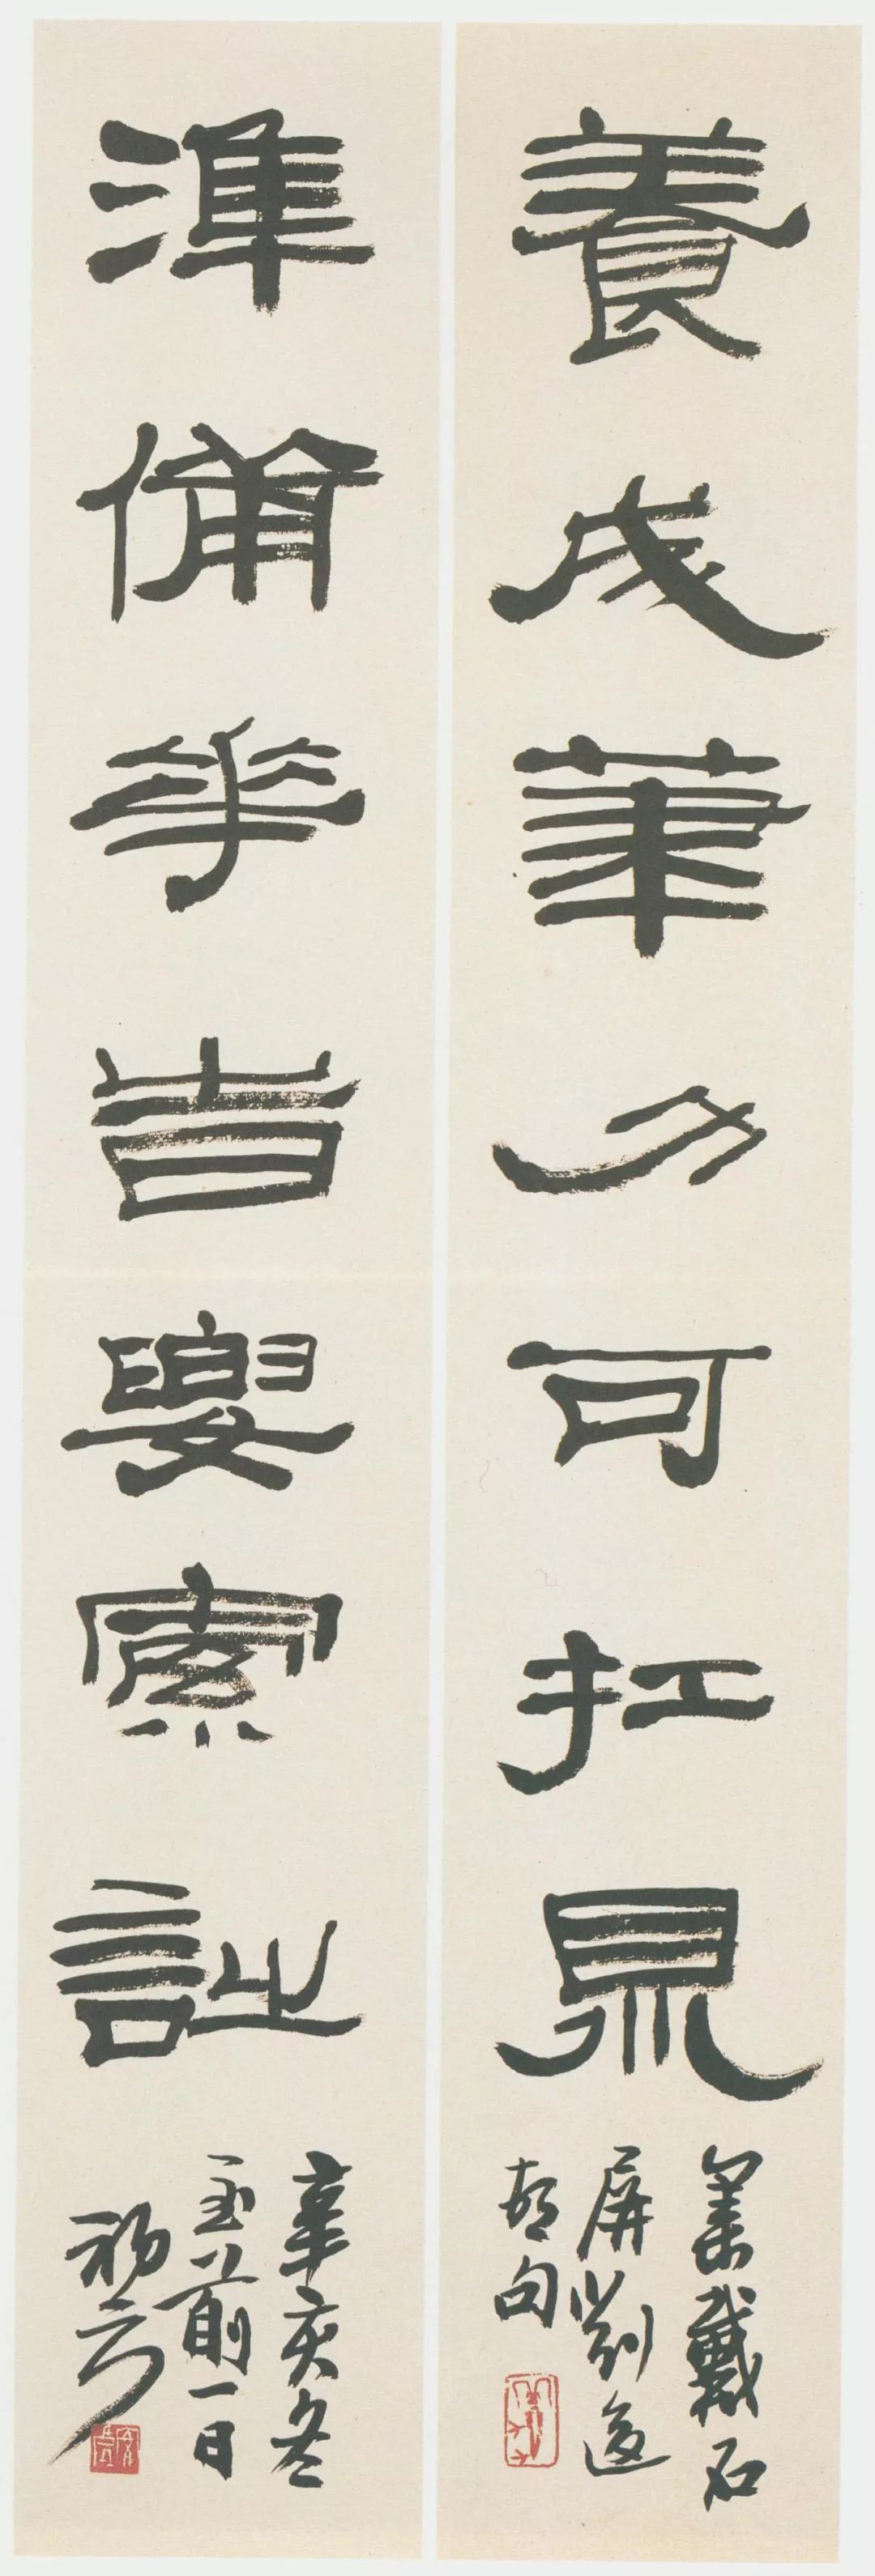 養成筆力可扛鼎
集戴石
屏劉後
邨句
準備華旹要索詩
辛亥冬
至前一日